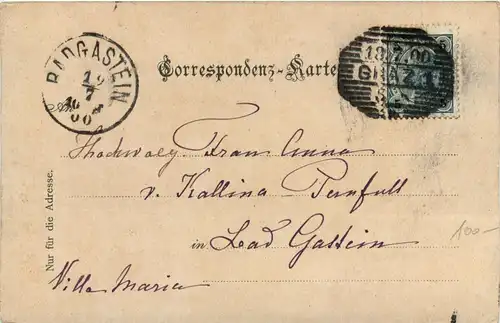 BADGASTEIN
19
7
00
18.7.00
GRAZ 1
Correspondenz-Karte
An
Hochwolg. Frau Anna
v. Kallina
in Bad Gastein
Villa Maria
Nur für die Adresse.
100-